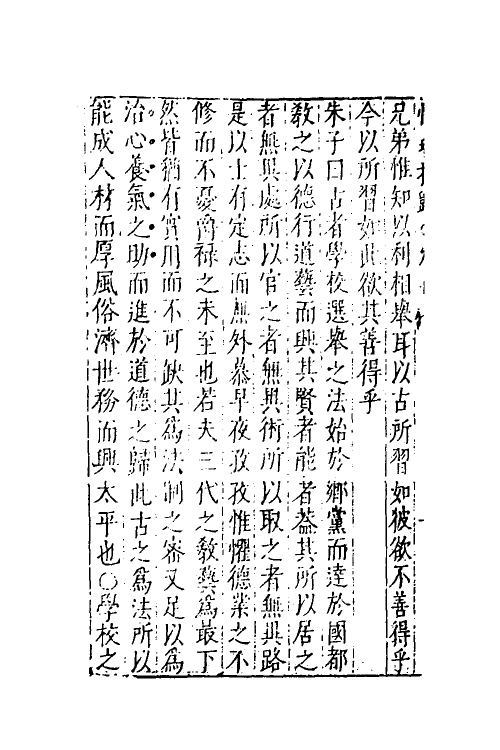 兄弟惟知以利相舉耳以古所習如彼欲不善得乎
今以所習如此欲其善得乎
朱子曰古者學校選舉之法始於鄉黨而達於國都
教之以德行道藝而興其賢者能者葢其所以居之
者無異處所以官之者無異術所以取之者無異路
是以士有定志而無外慕早夜孜孜惟懼德業之不
修而不憂爵祿之未至也若夫三代之教藝爲最下
然皆猶有實用而不可缺其爲法制之密又足以爲
治心養氣之助而進於道德之歸此古之爲法所以
能成人材而厚風俗濟世務而興太平也○學校之